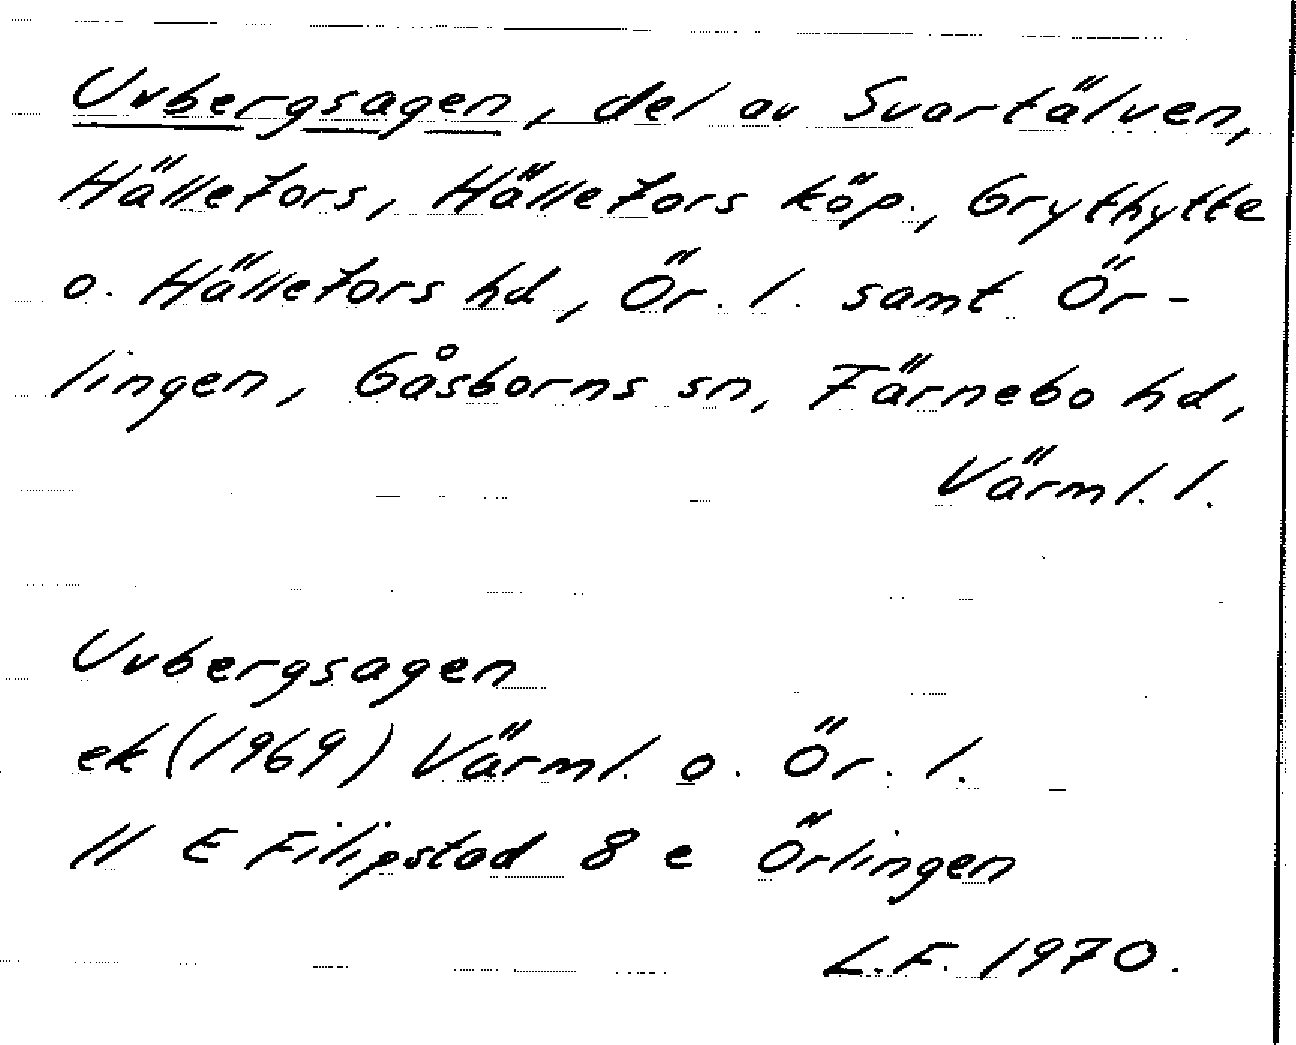 Uvbergsagen, del av Svartälven,
Hällefors, Hällefors köp., Grythytte
o. Hällefors hd, Ör. l. samt Ör-
lingen, Gåsborns sn, Färnebo hd,
Värml. l.
Uvbergsagen
ek (1969) Värml. o. Ör. l.
11 E Filipstad 8 e Örlingen
L.F. 1970.